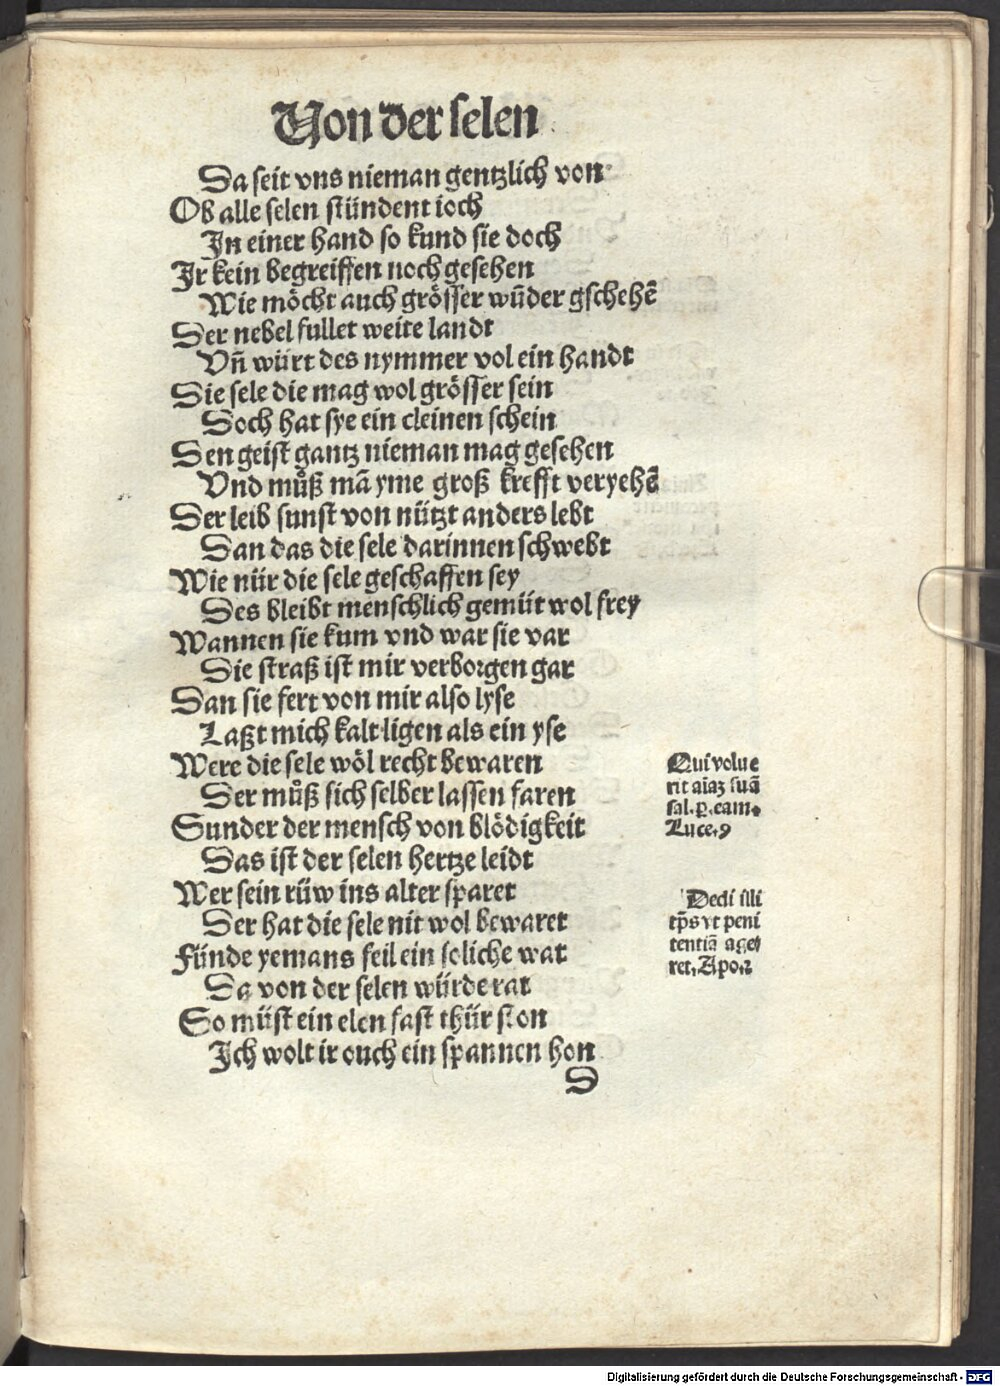 Von der selen
Da seit vns nieman gentzlich von
Ob alle selen stündent ioch
In einer hand so kund sie doch
Ir kein begreiffen noch gesehen
Wie möcht auch grösser wūder gschehē
Der nebel fullet weite landt
Vñ würt des nymmer vol ein handt
Die sele die mag wol grösser sein
Doch hat sye ein cleinen schein
Den geist gantz nieman mag gesehen
Vnd můß mā yme groß krefft veryehē
Der leib sunst von nützt anders lebt
Dan das die sele darinnen schwebt
Wie nür die sele geschaffen sey
Des bleibt menschlich gemüt wol frey
Wannen sie kum vnd war sie var
Die straß ist mir verborgen gar
Dan sie fert von mir also lyse
Laßt mich kalt ligen als ein yse
Were die sele wöl recht bewaren
Der můß sich selber lassen faren
Sunder der mensch von blödigkeit
Das ist der selen hertze leidt
Wer sein rüw ins alter sparet
Der hat die sele nit wol bewaret
Fünde yemans feil ein soliche wat
Da von der selen würde rat
So müst ein elen fast thür ston
Ich wolt ir ouch ein spannen hon
D
Qui volue
rit aīaz suā
sal. ꝑ. eam.
Luce. 9
Dedi illi
tp̄s vt peni
tentiā age/
ret. Apo. 2
Digitalisierung gefördert durch die Deutsche Forschungsgemeinschaft - DFG